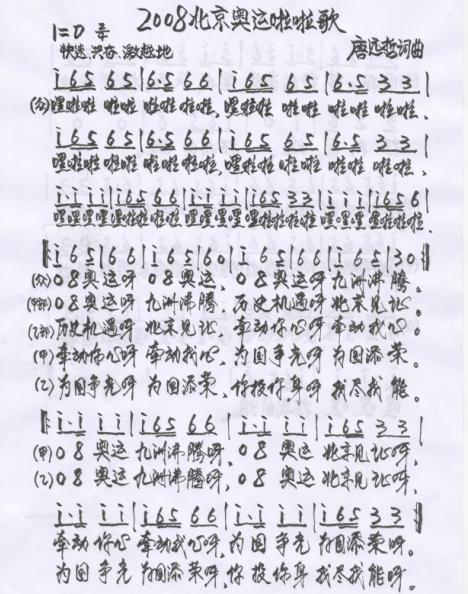 2008北京奥运啦啦歌
1=D 2/4
快速 兴奋 激越地 唐远哲词曲
i65 65|6·5 66|i65 65|6·5 33|
(众)嘿啦啦 啦啦 啦啦 啦啦,嘿啦啦 啦啦 啦啦 啦啦,
i65 65|6·5 66|i65 65|6·5 33|
嘿啦啦 啦啦 啦啦 啦啦,嘿啦啦 啦啦 啦啦 啦啦,
i·i i i|i65 66|i·i i i|i65 33|i·i i|i65 6|
嘿嘿嘿嘿啦啦啦啦啦
‖:i 65|66|i 65|60|i 65|66|i 65|30:‖
(众)08奥运呀 08奥运,08奥运呀 九洲沸腾。
(甲部)08奥运呀 九洲沸腾,历史机遇呀 北京见证。
(乙部)历史机遇呀 北京见证,牵动你心呀 牵动我心。
(甲)牵动你心呀 牵动我心,为国争光呀 为国添荣。
(乙)为国争光呀 为国添荣,你投你身呀 我尽我能。
‖:i·i i i|i65 66|i·i i i|i65 33|
(甲)08 奥运 九洲沸腾呀,08 奥运 北京见证呀,
(乙)08 奥运 九洲沸腾呀,08 奥运 北京见证呀,
i·i i i|i65 66|i·i i i|i65 33|
牵动 你心 牵动我心呀,为国 争光 为国添荣呀。
为国 争光 为国添荣呀,你投你身 我尽我能呀。